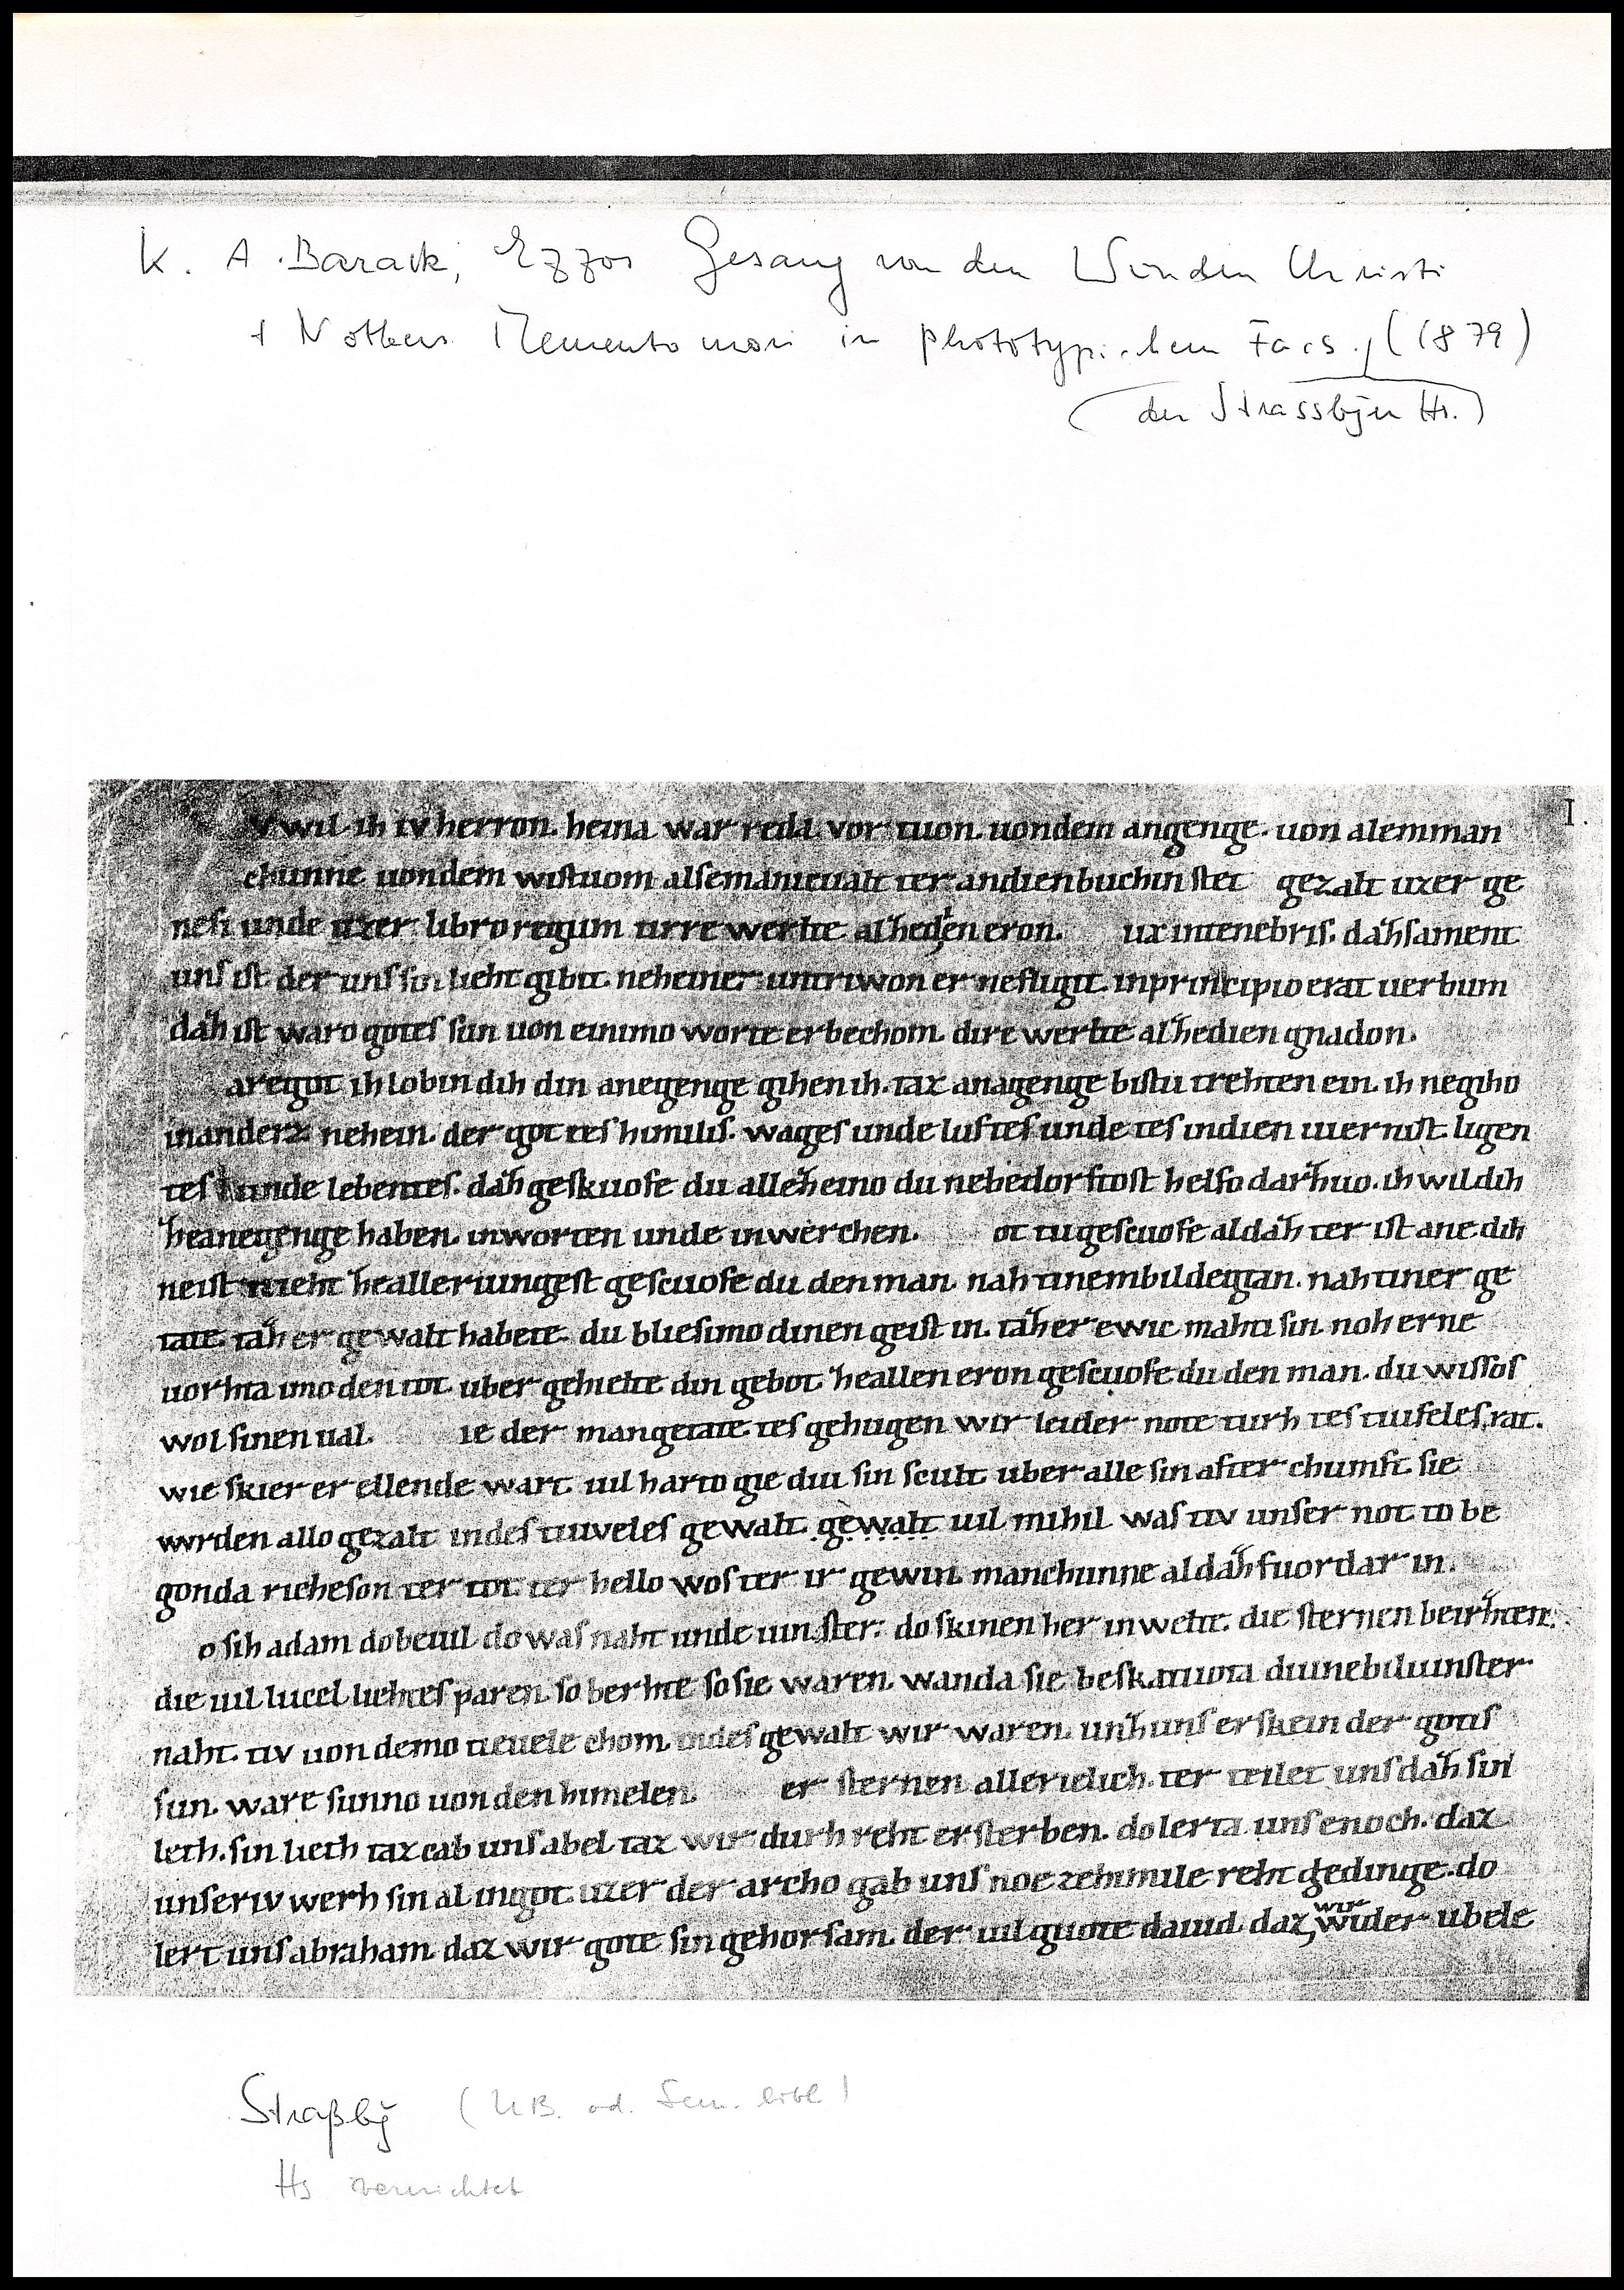 K. A. Barack, Ezzos Gesang von den Wundern Christi
+ Notkers Memento mori in phototypischem Facs., (1879)
(der Strassbger Hs.)
I.
V wil ih iv herron. heina war reda vor tuon. uondem angenge. uon alemman
chunne uondem wistuom alsemanicualt ter andien buchin stet gezalt uzer ge
nesi unde uzer libro regum tirre werlte alhedien eron. ux intenebris. dähsament
uns ist der uns sin lieht gibit. neheiner untriwon er nefligit. inprincipio erat uerbum
däh ist waro gotes sun uon einimo worte er bechom. dire werlte alhedien gnadon.
aregot ih lobin dih din anegenge gihen ih. taz anagenge bistu trehten ein. ih negiho
inanderz nehein. der got tes himilis. wages unde luftes unde tes indien uiernist. ligen
tes unde lebentes. däh geskuofe du alleheino du nebedorftost helfo darhuo. ih wil dih
heanegenge haben. inworten unde inwerchen. ot tugescuofe aldäh ter ist ane dih
neist nieht healleriungest gescuofe du den man. nah tinembildegitan. nah tiner ge
tate. täh er gewalt habete. du bliesimo dinen geist in. täh er ewic mahti sin. noh erne
uorhta imo den tot. uber gehielte din gebot heallen eron gescuofe du den man. du wissos
wol sinen ual. ie der man getate tes gehugen wir leider note turh tes tiufeles rat.
wie skier er ellende wart. uil harto gie diu sin scult. uber alle sin after chumft. sie
wrden allo gezalt indes tiuveles gewalt. gewalt uil mihil was tiv unser not to be
gonda richeson ter tot ter hello wos ter ir gewin. manchunne aldäh fuor dar in.
o sih adam dobeuil do was naht unde uinster. do skinen her inwelte. die sternen beirhten.
die uil lucel liehtes paren. so berhte so sie waren. wanda sie beskatuota diu nebiluinster
naht. tiv uon demo tieuele chom. indes gewalt wir waren. unh uns erskein der gotis
sun. ware sunno uon den himelen. er sternen allerielich. ter teilet uns däh sin
leth. sin lieth taz cab uns abel. taz wir durh reht ersterben. do lerta uns enoch. daz
unseriv werh sin al ingot. uzer der archo gab uns noe zehimile reht gedinge. do
lert uns abraham. daz wir gote sin gehorsam. der uil guote dauid. daz wir wider ubele
Straßbg (UB. od. Sem. bibl)
Hs vernichtet